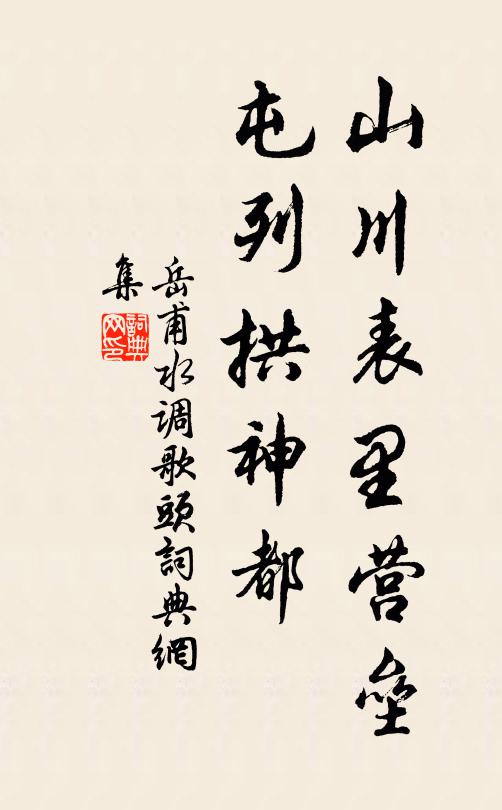 山川表里营垒
屯列拱神都
岳甫水调歌頭詞典網
集
詞典
网印